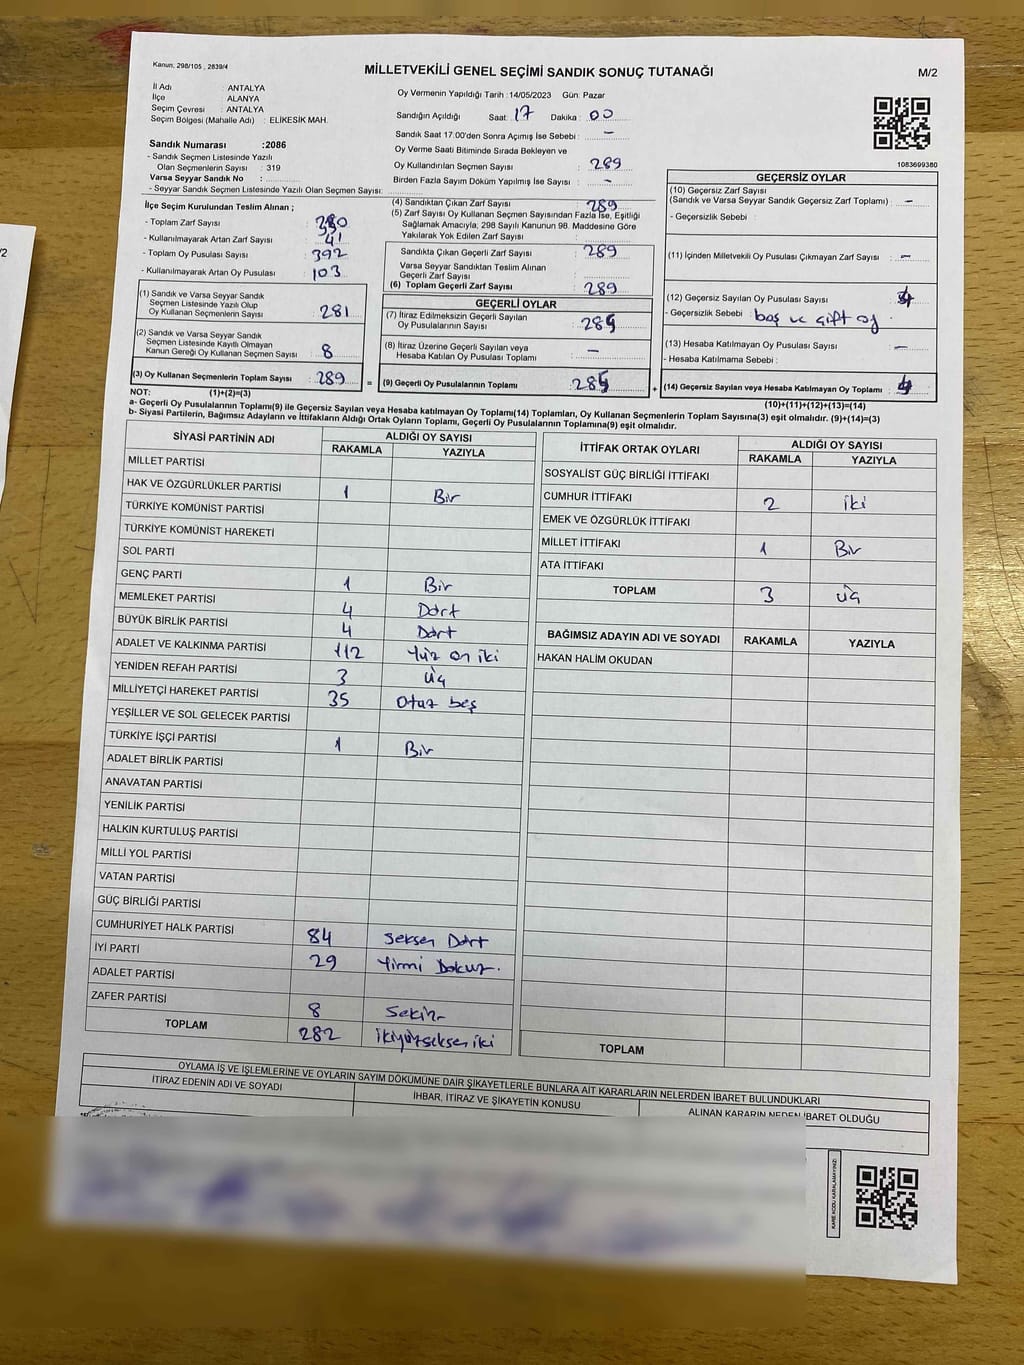 Kanun, 298/105 , 2839/4
MİLLETVEKİLİ GENEL SEÇİMİ SANDIK SONUÇ TUTANAĞI
M/2
İl Adı : ANTALYA
İlçe : ALANYA
Seçim Çevresi : ANTALYA
Seçim Bölgesi (Mahalle Adı) : ELİKESİK MAH.
Sandık Numarası :2086
- Sandık Seçmen Listesinde Yazılı
Olan Seçmenlerin Sayısı : 319
Varsa Seyyar Sandık No :
- Seyyar Sandık Seçmen Listesinde Yazılı Olan Seçmen Sayısı:
Oy Vermenin Yapıldığı Tarih :14/05/2023 Gün: Pazar
Sandığın Açıldığı Saat 17 Dakika : 00
Sandık Saat 17:00'den Sonra Açımış İse Sebebi : –
Oy Verme Saati Bitiminde Sırada Bekleyen ve
Oy Kullandırılan Seçmen Sayısı : 289
Birden Fazla Sayım Döküm Yapılmış İse Sayısı : –
1083699380
İlçe Seçim Kurulundan Teslim Alınan ;
- Toplam Zarf Sayısı :
- Kullanılmayarak Artan Zarf Sayısı : 41
- Toplam Oy Pusulası Sayısı : 392
- Kullanılmayarak Artan Oy Pusulası : 103
(1) Sandık ve Varsa Seyyar Sandık
Seçmen Listesinde Yazılı Olup
Oy Kullanan Seçmenlerin Sayısı : 281
(2) Sandık ve Varsa Seyyar Sandık
Seçmen Listesinde Kayıtlı Olmayan
Kanun Gereği Oy Kullanan Seçmen Sayısı : 8
(3) Oy Kullanan Seçmenlerin Toplam Sayısı : 289
(1)+(2)=(3)
(4) Sandıktan Çıkan Zarf Sayısı : 289
(5) Zarf Sayısı Oy Kullanan Seçmen Sayısından Fazla İse, Eşitliği
Sağlamak Amacıyla, 298 Sayılı Kanunun 98. Maddesine Göre
Yakılarak Yok Edilen Zarf Sayısı :
Sandıkta Çıkan Geçerli Zarf Sayısı : 289
Varsa Seyyar Sandıktan Teslim Alınan
Geçerli Zarf Sayısı :
(6) Toplam Geçerli Zarf Sayısı : 289
GEÇERLİ OYLAR
(7) İtiraz Edilmeksizin Geçerli Sayılan
Oy Pusulalarının Sayısı : 285
(8) İtiraz Üzerine Geçerli Sayılan veya
Hesaba Katılan Oy Pusulası Toplamı : –
= (9) Geçerli Oy Pusulalarının Toplamı : 285 +
GEÇERSİZ OYLAR
(10) Geçersiz Zarf Sayısı
(Sandık ve Varsa Seyyar Sandık Geçersiz Zarf Toplamı) : –
- Geçersizlik Sebebi :
(11) İçinden Milletvekili Oy Pusulası Çıkmayan Zarf Sayısı : –
(12) Geçersiz Sayılan Oy Pusulası Sayısı : 4
- Geçersizlik Sebebi : boş ve çift oy .
(13) Hesaba Katılmayan Oy Pusulası Sayısı : –
- Hesaba Katılmama Sebebi :
(14) Geçersiz Sayılan veya Hesaba Katılmayan Oy Toplamı : 4
(10)+(11)+(12)+(13)=(14)
NOT:
a- Geçerli Oy Pusulalarının Toplamı(9) ile Geçersiz Sayılan veya Hesaba katılmayan Oy Toplamı(14) Toplamları, Oy Kullanan Seçmenlerin Toplam Sayısına(3) eşit olmalıdır. (9)+(14)=(3)
b- Siyasi Partilerin, Bağımsız Adayların ve İttifakların Aldığı Ortak Oyların Toplamı, Geçerli Oy Pusulalarının Toplamına(9) eşit olmalıdır.
SİYASİ PARTİNİN ADI ALDIĞI OY SAYISI
RAKAMLA YAZIYLA
MİLLET PARTİSİ
HAK VE ÖZGÜRLÜKLER PARTİSİ 1 Bir
TÜRKİYE KOMÜNİST PARTİSİ
TÜRKİYE KOMÜNİST HAREKETİ
SOL PARTİ
GENÇ PARTİ 1 Bir
MEMLEKET PARTİSİ 4 Dört
BÜYÜK BİRLİK PARTİSİ 4 Dört
ADALET VE KALKINMA PARTİSİ 112 Yüz on iki
YENİDEN REFAH PARTİSİ 3 üç
MİLLİYETÇİ HAREKET PARTİSİ 35 Otuz beş
YEŞİLLER VE SOL GELECEK PARTİSİ
TÜRKİYE İŞÇİ PARTİSİ 1 Bir
ADALET BİRLİK PARTİSİ
ANAVATAN PARTİSİ
YENİLİK PARTİSİ
HALKIN KURTULUŞ PARTİSİ
MİLLİ YOL PARTİSİ
VATAN PARTİSİ
GÜÇ BİRLİĞİ PARTİSİ
CUMHURİYET HALK PARTİSİ 84 Seksen Dört
İYİ PARTİ 29 Yirmi Dokuz.
ADALET PARTİSİ
ZAFER PARTİSİ 8 Sekiz
TOPLAM 282 ikiyüzseksen iki
İTTİFAK ORTAK OYLARI ALDIĞI OY SAYISI
RAKAMLA YAZIYLA
SOSYALİST GÜÇ BİRLİĞİ İTTİFAKI
CUMHUR İTTİFAKI 2 iki
EMEK VE ÖZGÜRLÜK İTTİFAKI
MİLLET İTTİFAKI 1 Bir
ATA İTTİFAKI
TOPLAM 3 üç
BAĞIMSIZ ADAYIN ADI VE SOYADI RAKAMLA YAZIYLA
HAKAN HALİM OKUDAN
TOPLAM
OYLAMA İŞ VE İŞLEMLERİNE VE OYLARIN SAYIM DÖKÜMÜNE DAİR ŞİKAYETLERLE BUNLARA AİT KARARLARIN NELERDEN İBARET BULUNDUKLARI
İTİRAZ EDENİN ADI VE SOYADI İHBAR, İTİRAZ VE ŞİKAYETİN KONUSU ALINAN KARARIN NEDEN İBARET OLDUĞU
KARE KODU KARALAMAYINIZ!